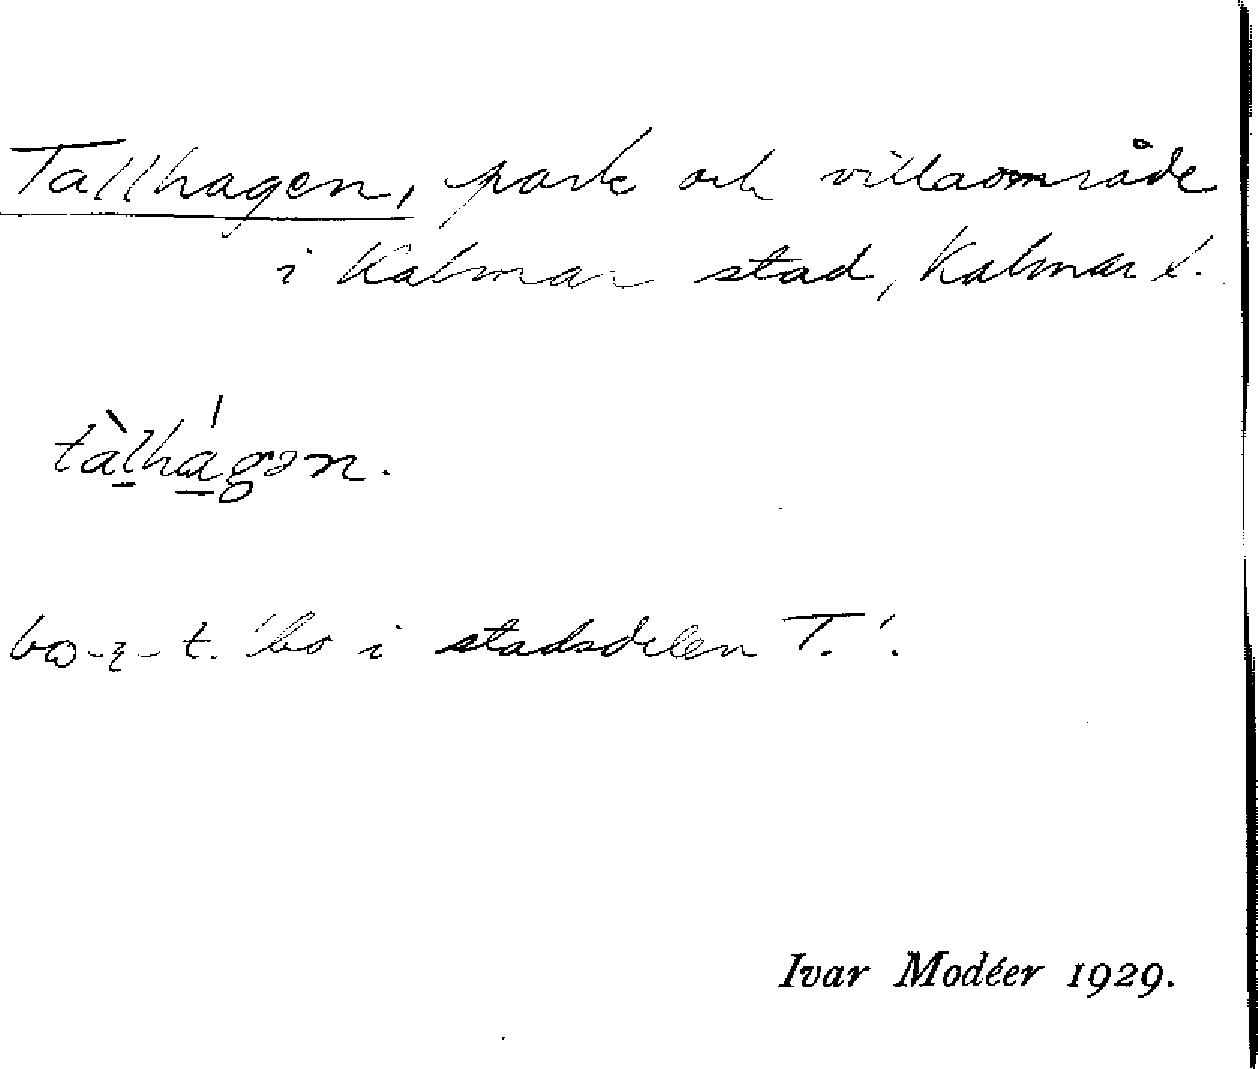 Tallhagen, park och villaområde
i Kalmar stad, Kalmar l.
tàlhágən.
bo -ɿ- t. 'bo i stadsdelen T.'.
Ivar Modéer 1929.